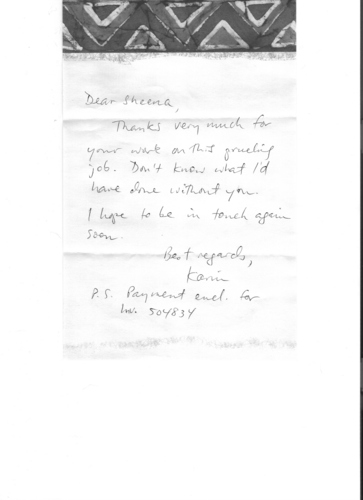 Dear Sheena,
Thanks very much for
your work on this grueling
job. Don't know what I'd
have done without you.
I hope to be in touch again
soon.
Best regards,
Karin
P.S. Payment encl. for
Inv. 504834